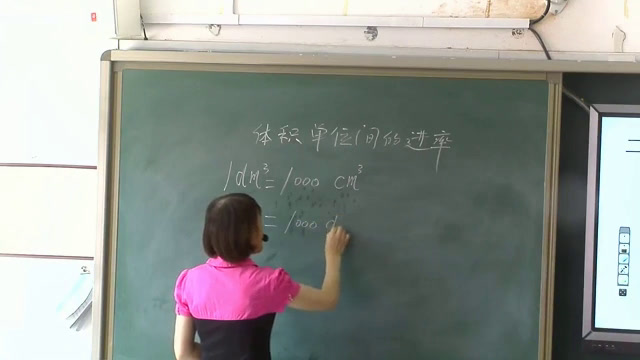 体积单位间的进率
1dm³=1000 cm³
=1000 d